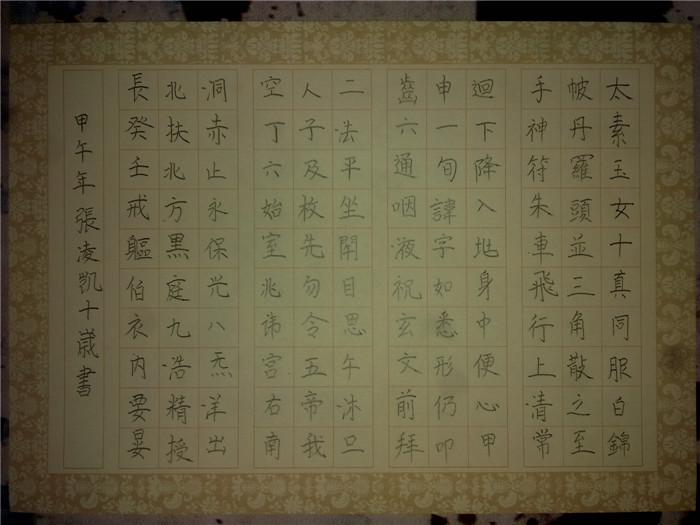 太素玉女十真同服白錦
帔丹羅頭並三角散之至
手神符朱車飛行上清常
迴下降入地身中便心甲
申一旬諱字如悉形仍叩
齒六通咽液祝玄文前拜
二法平坐閉目思午沐口
人子及枚先勿令五帝我
空丁六始室兆諱宮右南
洞赤止永保光八炁洋出
北扶北方黑庭九浩精授
長癸壬戒軀伯衣内要晏
甲午年張凌凱十歲書